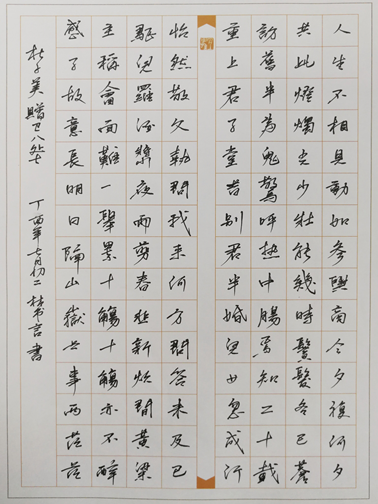 人生不相見動如參與商今夕復何夕
共此燈燭光少壯能幾時鬢髮各已蒼
訪舊半為鬼驚呼熱中腸焉知二十載
重上君子堂昔别君未婚兒女忽成行
怡然敬父執問我來何方問答未及已
驅兒羅酒漿夜雨剪春韭新炊間黃粱
主稱會面難一舉累十觴十觴亦不醉
感子故意長明日隔山嶽世事兩茫茫
杜子美贈卫八处士 丁酉年七月初二林书言書